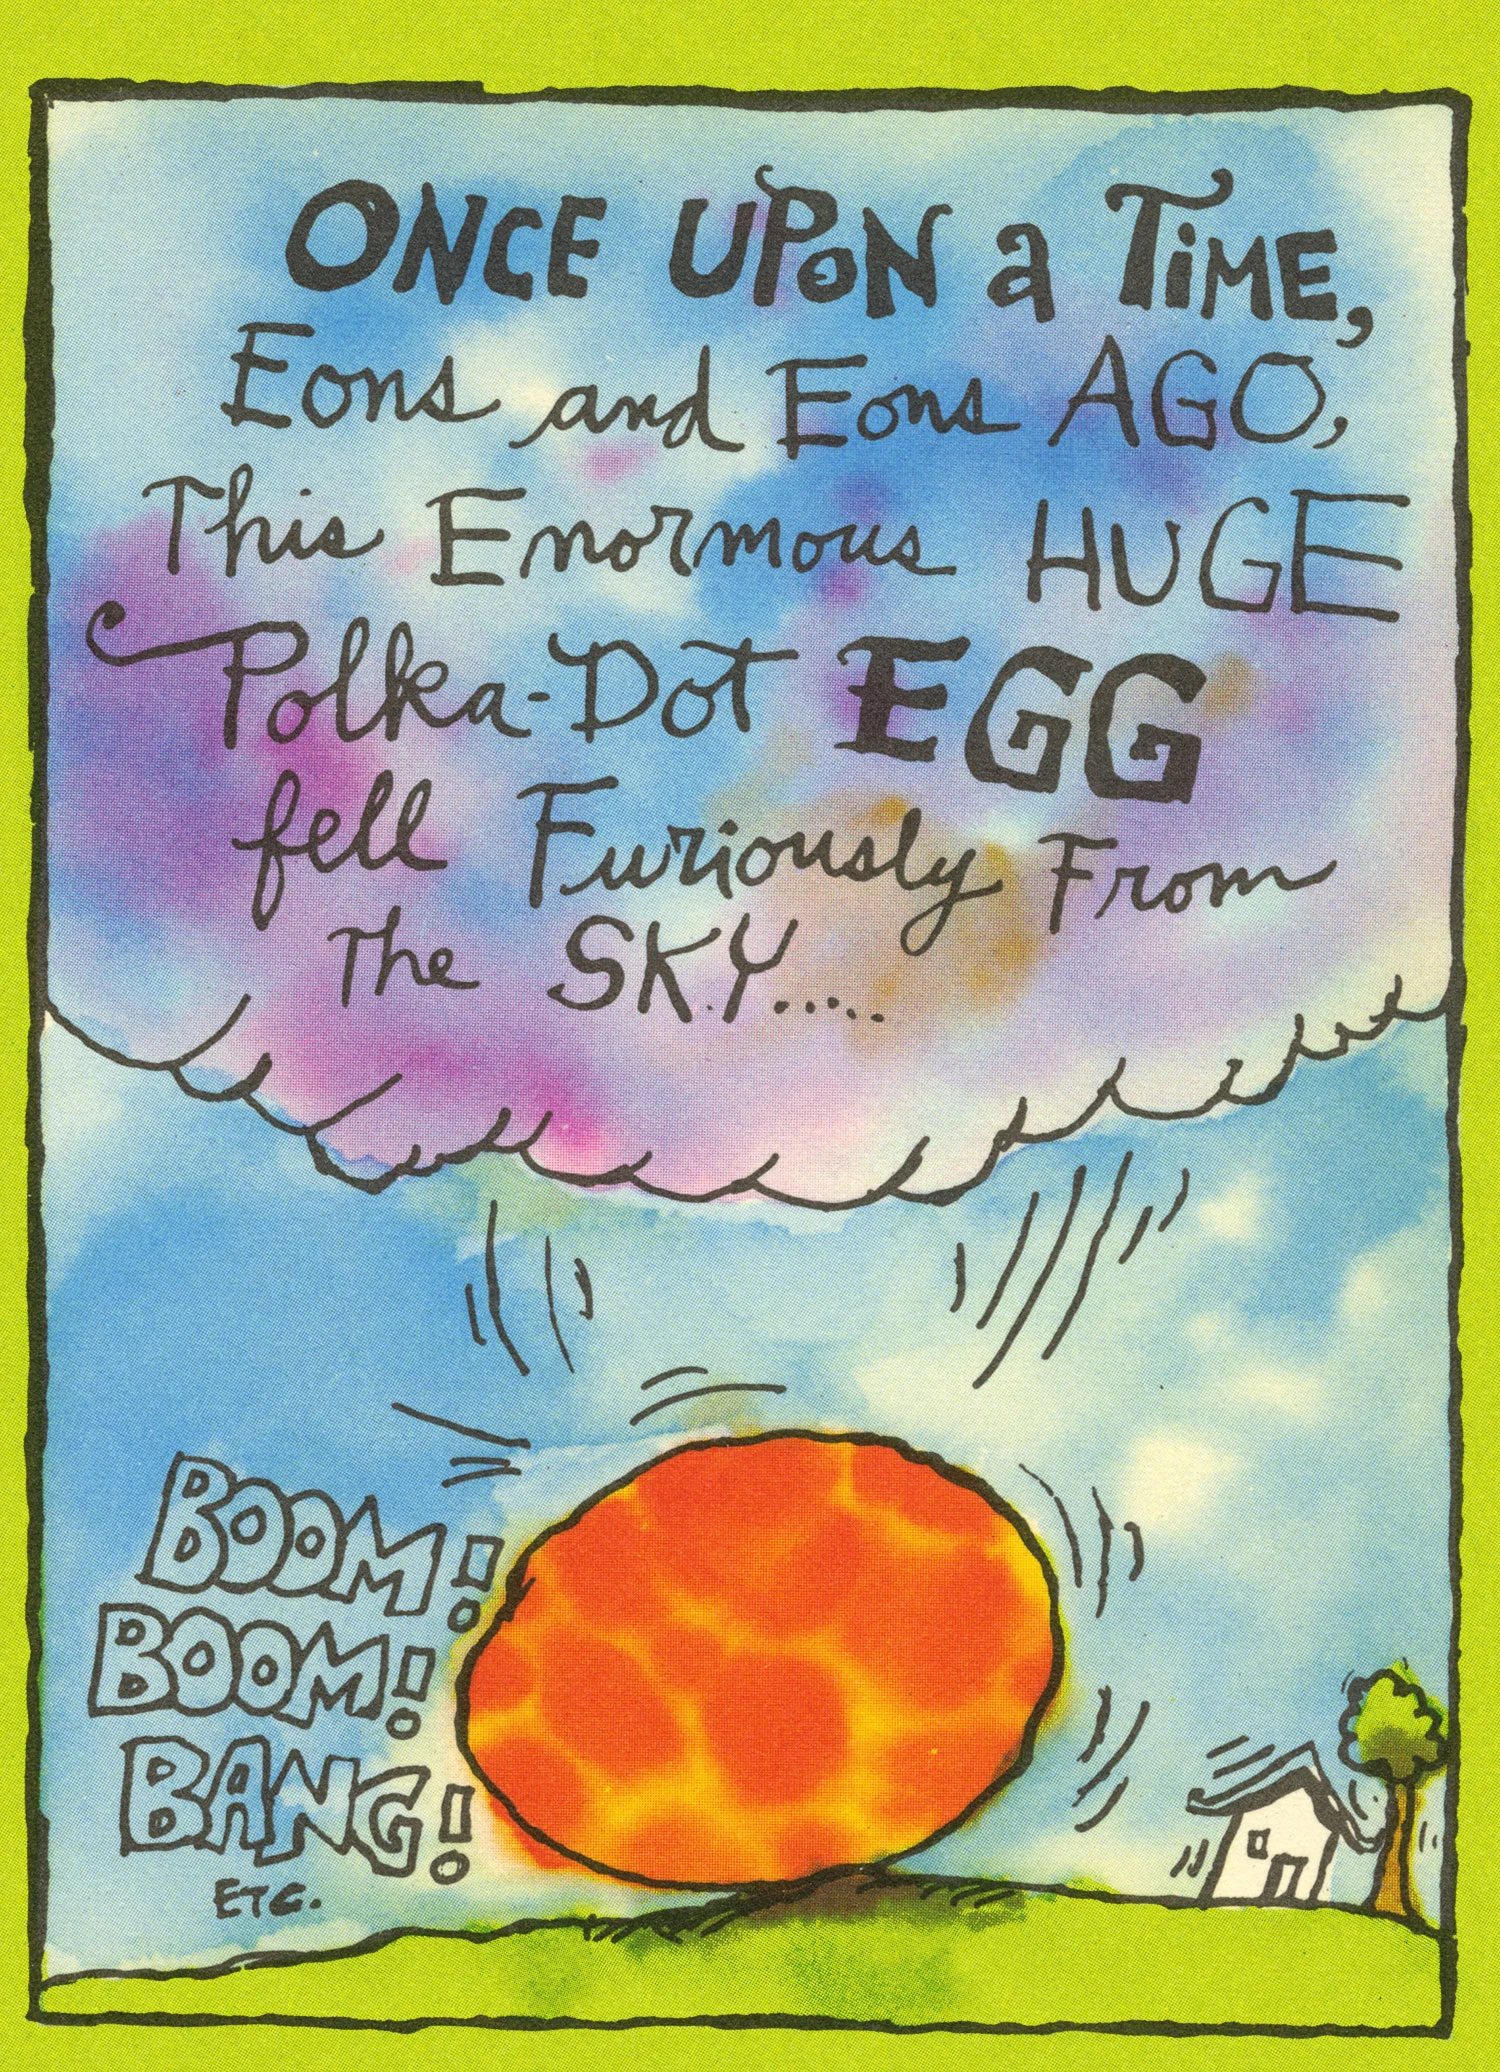 ONCE UPON a TiME,
Eons and Eons AGO,
This Enormous HUGE
Polka-Dot EGG
fell Furiously From
The SKY.....
BOOM!
BOOM!
BANG!
ETC.